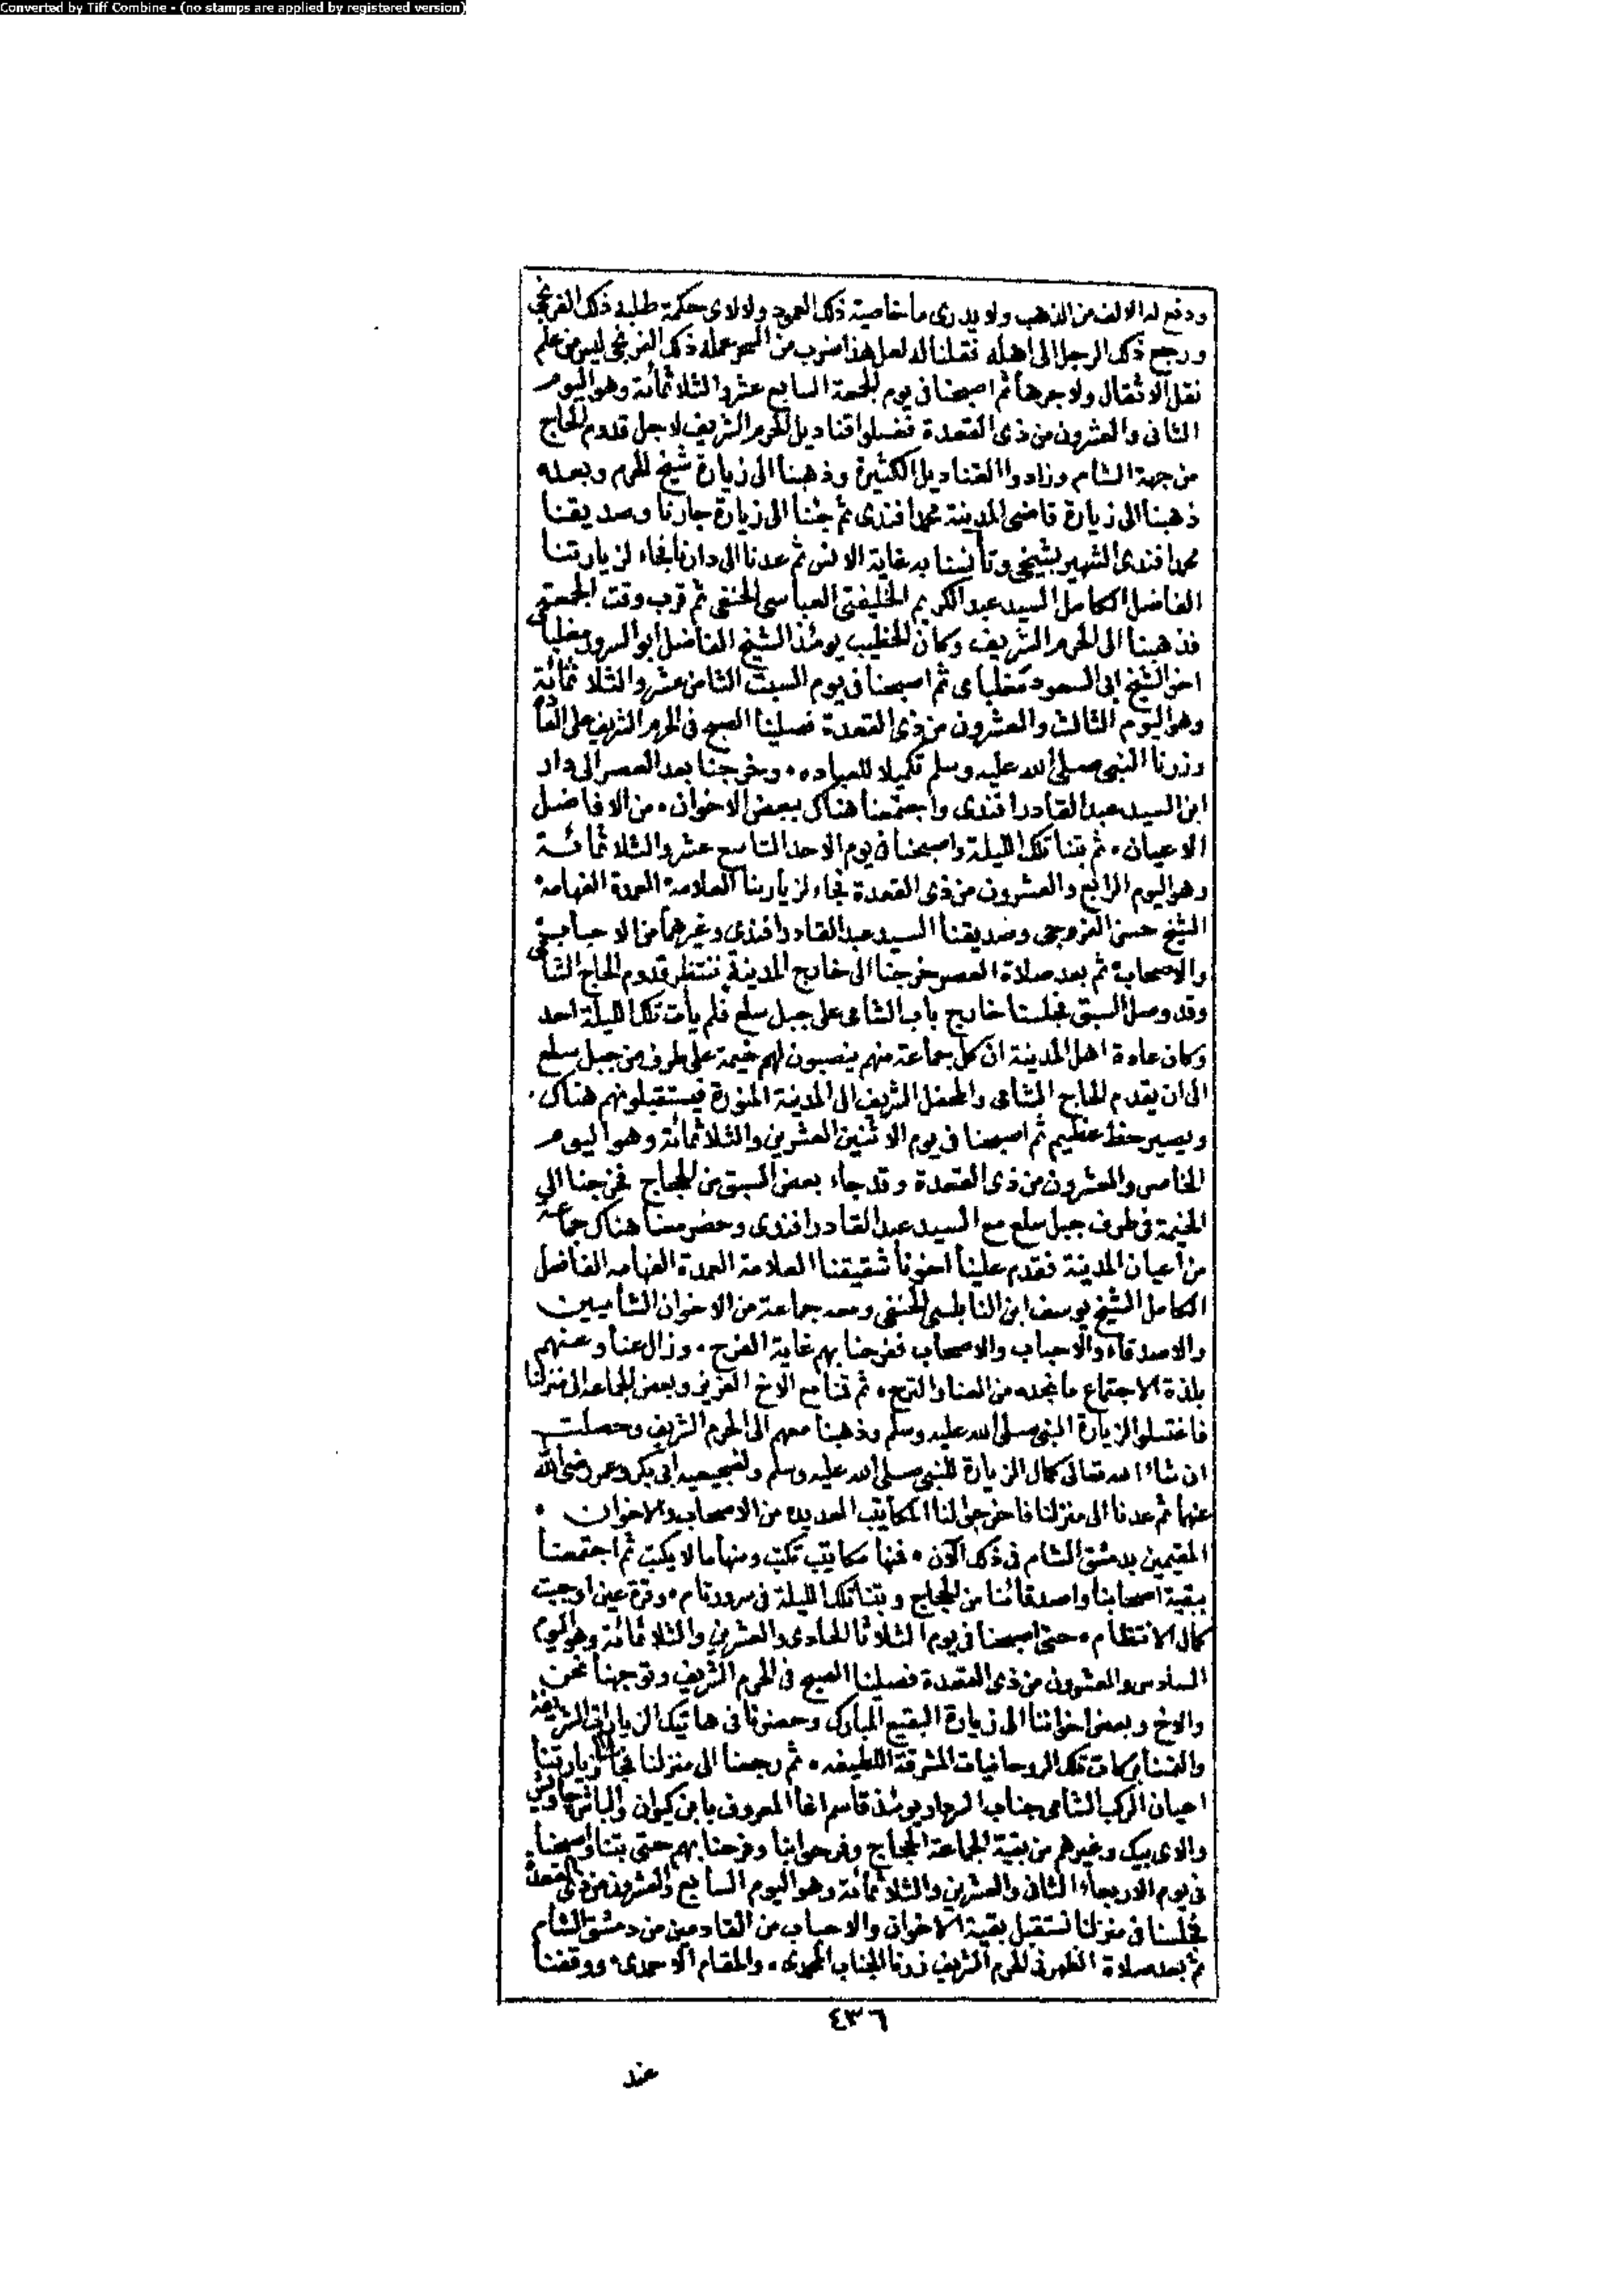 Converted by Tiff Combine - (no stamps are applied by registered version)
ودفع له الالف من الذهب ولا يدرى ما خاصية ذلك العمود ولا لاى حكمة طلبه ذلك الفرنجى
ورجع ذلك الرجل الى اهله فقلنا له لعل هذا ضرب من السحر عمله ذلك الفرنجى ليس من علم
نقل الاثقال ولا جرها ثم اصبحنا فى يوم الجمعة السابع عشر والثلاثمائة وهو اليوم
الثانى والعشرون من ذى القعدة فغسلوا قناديل الحرم الشريف لاجل قدوم الحاج
من جهة الشام وزادوا القناديل الكثيرة وذهبنا الى زيارة شيخ الحرم وبعده
ذهبنا الى زيارة قاضى المدينة محمد افندى ثم جئنا الى زيارة جارنا وصديقنا
محمد افندى الشهير بشيخى وتأنسنا به غاية الانس ثم عدنا الى دارنا فجاء لزيارتنا
الفاضل الكامل السيد عبد الكريم الخليفتى العباسى الحنفى ثم قرب وقت الجمعة
فذهبنا الى الحرم الشريف وكان الخطيب يومئذ الشيخ الفاضل ابو السرور مغلباى
اخو الشيخ ابى السعود مغلباى ثم اصبحنا فى يوم السبت الثامن عشر والثلاثمائة
وهو اليوم الثالث والعشرون من ذى القعدة فصلينا الصبح فى الحرم الشريف على
وزرنا النبى صلى الله عليه وسلم تكميلا للعباده • وخرجنا بعد العصر الى دار
ابن السيد عبد القادر افندى واجتمعنا هناك ببعض الاخوان • من الافاضل
الاعيان • ثم بتنا تلك الليلة واصبحنا فى يوم الاحد التاسع عشر والثلاثمائة
وهو اليوم الرابع والعشرون من ذى القعدة فجاء لزيارتنا العلامة العمدة الفهامة
الشيخ حسن وصديقنا السيد عبد القادر افندى وغيرهما من الاحباب
والاصحاب ثم بعد صلاة العصر خرجنا الى خارج المدينة ننتظر قدوم الحاج الشامى
وقد وصل السبق فجلسنا خارج باب الشامى على جبل سلع فلم يأت تلك الليلة احد
وكان عادة اهل المدينة ان كل جماعة منهم ينصبون لهم خيمة على طرف من جبل سلع
الى ان يقدم الحاج الشامى والمحفل الشريف الى المدينة المنورة فيستقبلونهم هناك •
ويصير حظ عظيم ثم اصبحنا فى يوم الاثنين العشرين والثلاثمائة وهو اليوم
الخامس والعشرون من ذى القعدة وقد جاء بعض السبق من الحجاج فخرجنا الى
الخيمة فى طرف جبل سلع مع السيد عبد القادر افندى وحضر معنا هناك جماعة
من اعيان المدينة فقدم علينا اخونا شقيقنا العلامة العمدة الفهامه الفاضل
الكامل الشيخ يوسف ابن النابلسى الحنفى ومعه جماعة من الاخوان الشاميين
والاصدقاء والاحباب والاصحاب ففرحنا بهم غاية الفرح • وزال عنا وعنهم
بلذة الاجتماع ما نجده من العنا والترح • ثم قمنا مع الاخ العزيز وبعض الجماعة الى منزلنا
فاغتسلوا لزيارة النبى صلى الله عليه وسلم وذهبنا معهم الى الحرم الشريف وحصلت
ان شاء الله تعالى كمال الزيارة للنبى صلى الله عليه وسلم ولضجيعيه ابى بكر وعمر رضى الله
عنهما ثم عدنا الى منزلنا فاخرجوا لنا المكاتيب العديده من الاصحاب والاخوان •
المقيمين بدمشق الشام فى ذلك الآن • فمنها مكاتيب تكتب ومنها ما لا يكتب ثم اجتمعنا
ببقية اصحابنا واصدقائنا من الحجاج وبتنا تلك الليلة فى سرور تام • وقرة عين اوجبت
كمال الانتظام • حتى اصبحنا فى يوم الثلاثا الحادى والعشرين والثلاثمائة وهو اليوم
السادس والعشرون من ذى القعدة فصلينا الصبح فى الحرم الشريف وتوجهنا نحن
والاخ وبعض اخواننا الى زيارة البقيع المبارك وحضرنا فى هاتيك الزيارات الشريفة
والتمسنا بركات تلك الروحانيات المشرقة اللطيفه • ثم رجعنا الى منزلنا فجاء لزيارتنا
اعيان الركب الشامى جناب يومئذ قاسم اغا المعروف بابن كيوان والباش جاويش
والاى بيك وغيرهم من بقية الجماعة الحجاج وفرحوا بنا وفرحنا بهم حتى بتنا واصبحنا
فى يوم الاربعاء الثانى والعشرين والثلاثمائة وهو اليوم السابع والعشرون من ذى القعدة
فجلسنا فى منزلنا نستقبل بقية الاخوان والاحباب من القادمين من دمشق الشام
ثم بعد صلاة الظهر فى الحرم الشريف زرنا الجناب المحمدى • والمقام الاحمدى • ووقفنا
٤٣٦
عند